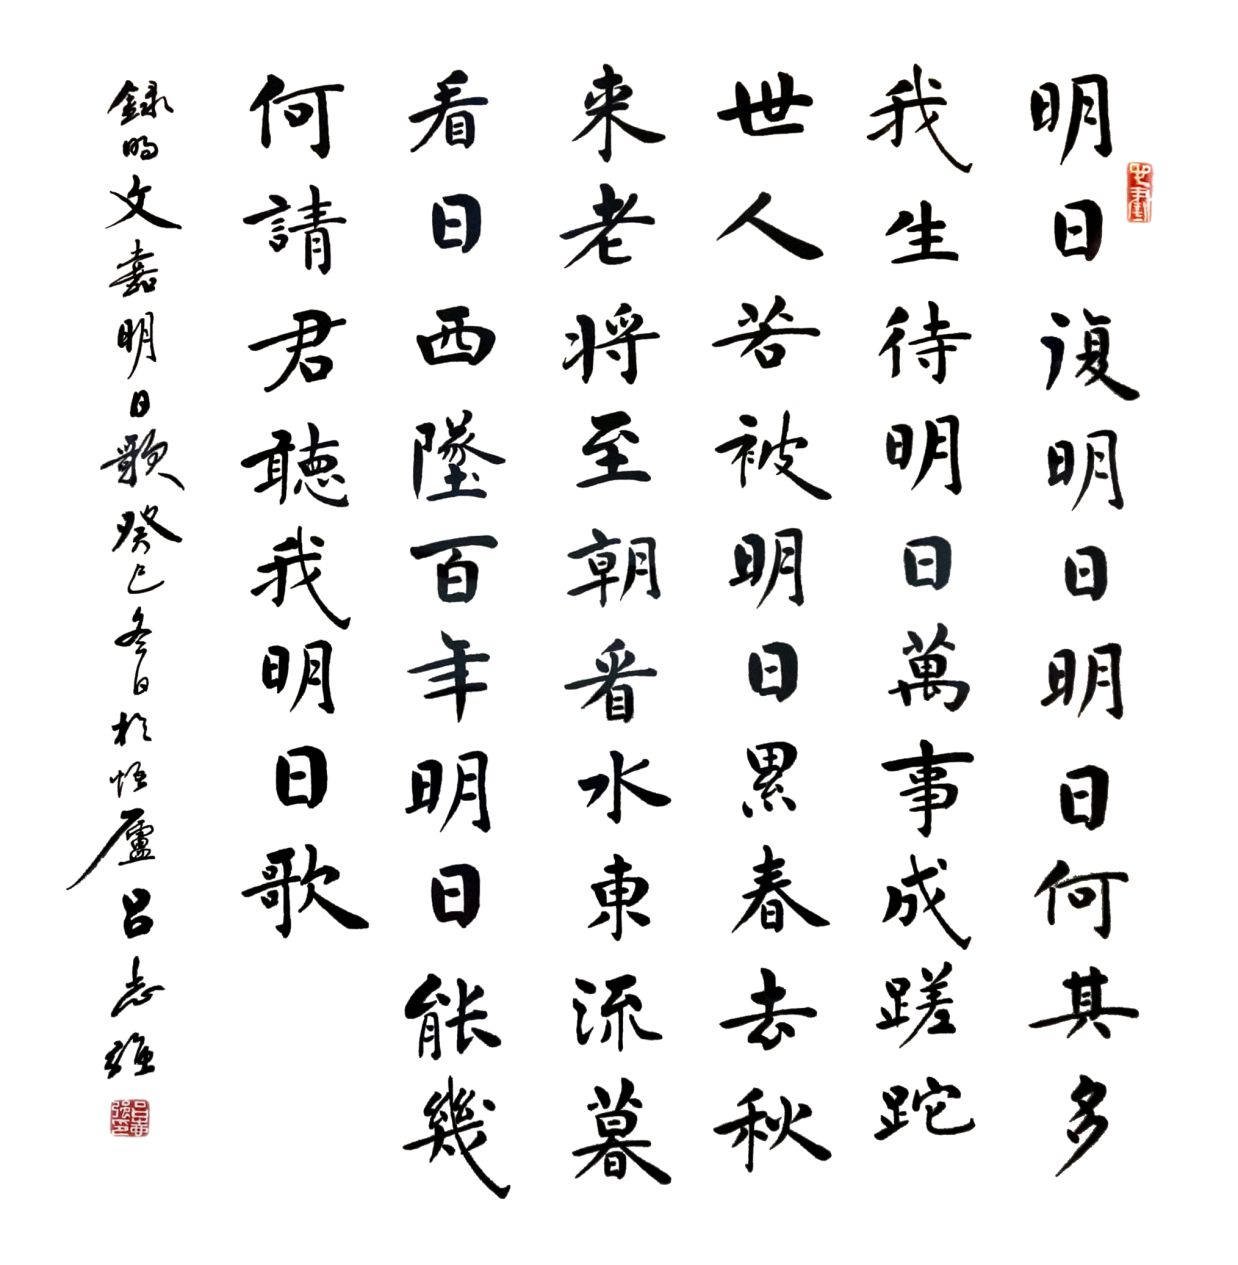 明日復明日明日何其多
我生待明日萬事成蹉跎
世人若被明日累春去秋
来老将至朝看水東流暮
看日西墜百年明日能幾
何請君聴我明日歌
録明文嘉明日歌癸巳冬日於悟廬吕志强